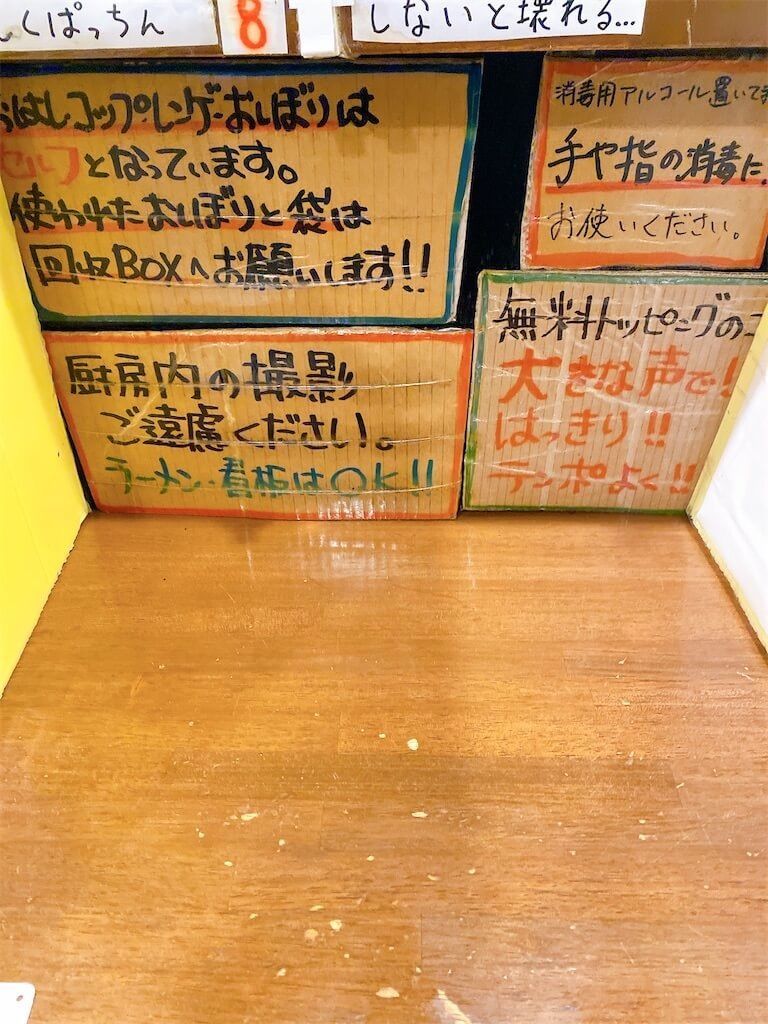 しくぱっちん
8
しないと壊れる…
おはし・コップ・レンゲ・おしぼりは
セルフとなっています。
使われたおしぼりと袋は
回収BOXへお願いします!!
消毒用アルコール置いてま
手や指の消毒に
お使いください。
厨房内の撮影
ご遠慮ください。
ラーメン・看板はOK!!
無料トッピングのコ
大きな声で!
はっきり!!
テンポよく!!